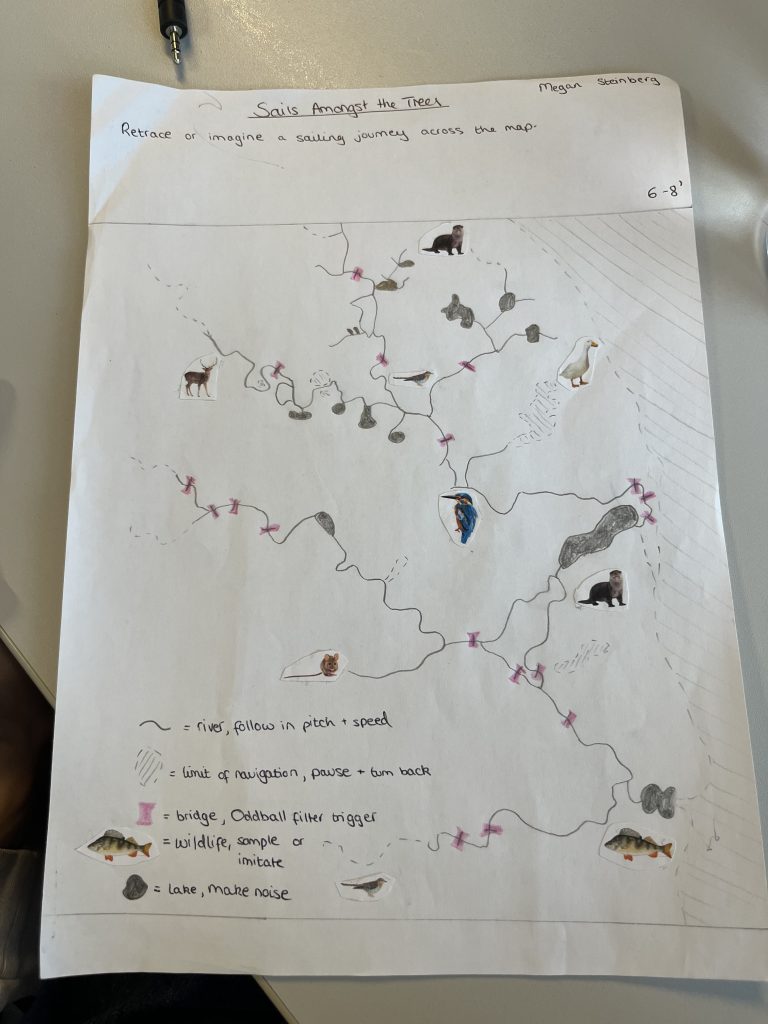 Megan Steinberg
Sails Amongst the Trees
Retrace or imagine a sailing journey across the map.
6-8'
= river, follow in pitch + speed
= limit of navigation, pause + turn back
= bridge, Oddball filter trigger
= wildlife, sample or
imitate
= lake, make noise